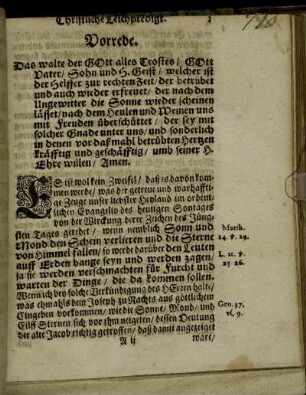 Christliche Leichpredigt. 3
Vorrede.
Das walte der GOtt alles Trostes / GOtt
Vater / Sohn und H. Geist / welcher ist
der Helffer zur rechten Zeit / der betrübet
und auch wieder erfreuet / der nach dem
Ungewitter die Sonne wieder scheinen
lässet / nach dem Heulen und Weinen uns
mit Freuden überschüttet / der sey mit
solcher Gnade unter uns / und sonderlich
in denen vor daßmahl betrübten Hertzen
kräfftig und geschäfftig / umb seiner H.
Ehre willen / Amen.
ES ist wol kein Zweifel / daß es davon kom-
men werde / was der getreue und warhaffti-
ge Zeuge unser liebster Heyland im ordent-
lichen Evangelio des heiligen Sontages
von der Wirckung derer Zeichen des Jüng-
sten Tages geredet / wenn nemblich Sonn und
Mond den Schein verlieren und die Sterne
von Himmel fallen / so werde darüber den Leuten
auff Erden bange seyn und werden zagen /
ja sie werden verschmachten für Furcht und
warten der Dinge / die da kommen sollen.
Wenn ich bey solcher Verkündigung des HErren halte /
was ehmahls dem Joseph zu Nachts aus göttlichem
Eingeben vorkommen / wie die Sonne / Mond / und
Eilff Sternen sich vor ihm neigeten / dessen Deutung
der alte Jacob richtig getroffen / daß damit angezeiget
A ij wäre /
Matth.
24 v. 29.
L. 21. v.
25 26.
Gen. 37.
vs. 9.